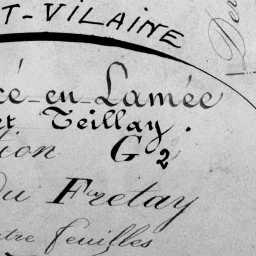 T-VILAINE
cé-en-Lamée
et Teillay.
ion G2
du Fretay
tre feuilles